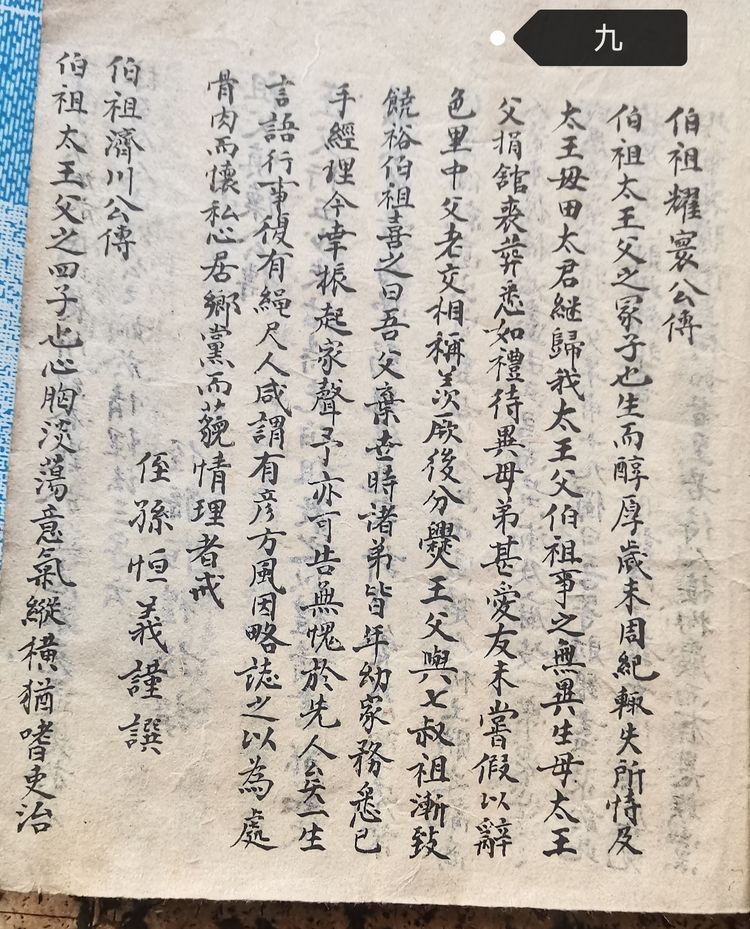 九
伯祖耀寰公傳
伯祖太王父之冢子也生而醇厚歲未周紀輙失所恃及
太王母田太君継歸我太王父伯祖事之無異生母太王
父捐舘喪葬悉如禮待異母弟甚愛友未嘗假以辭
色里中父老交相稱羡厥後分爨王父與七叔祖漸致
饒裕伯祖喜之曰吾父棄世時諸弟皆年幼家務悉已
手經理今幸振起家聲予亦可告無愧於先人矣一生
言語行事復有繩尺人咸謂有彥方風因略誌之以為處
骨肉而懷私心居鄉黨而藐情理者戒
侄孫恒義謹譔
伯祖濟川公傳
伯祖太王父之四子也心胸淡蕩意氣縱橫猶嗜吏治